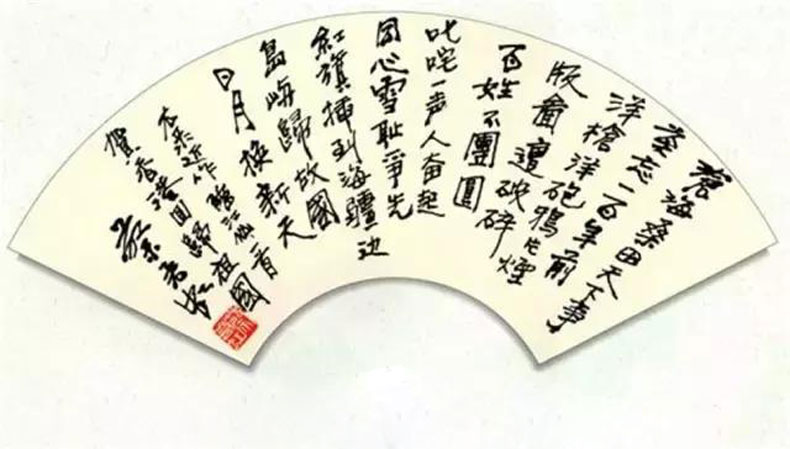 滄海桑田天下事
忘一百年前
洋槍洋砲鴉片煙
版圖遭破碎
百姓不團圓
叱咤一声人奮起
同心雪耻爭先
紅旗插到海疆边
島嶼歸故國
日月換新天
近作臨江仙一首
賀香港回歸祖國